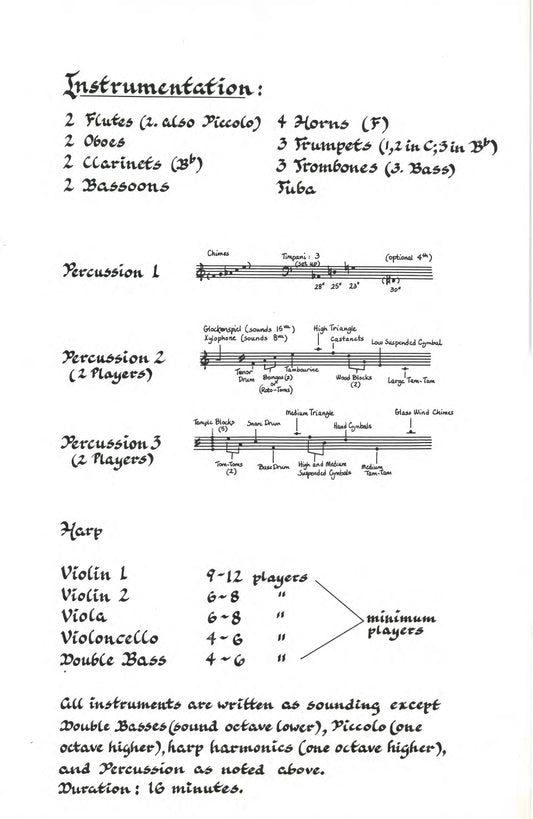 Instrumentation:
2 Flutes (2. also Piccolo)
2 Oboes
2 Clarinets (B♭)
2 Bassoons
4 Horns (F)
3 Trumpets (1,2 in C; 3 in B♭)
3 Trombones (3. Bass)
Tuba
Percussion 1
Chimes
Timpani: 3
(set up)
(optional 4th)
28" 25" 23"
30"
Percussion 2
(2 Players)
Glockenspiel (sounds 15th)
Xylophone (sounds 8va)
High Triangle
Castanets
Low Suspended Cymbal
Tenor
Drum
Bongos (2)
or
(Roto-Toms)
Tambourine
Wood Blocks
(2)
Large Tam-Tam
Percussion 3
(2 Players)
Temple Blocks
(5)
Snare Drum
Medium Triangle
Hand Cymbals
Glass Wind Chimes
Tom-Toms
(2)
Bass Drum
High and Medium
Suspended Cymbals
Medium
Tam-Tam
Harp
Violin 1 9-12 players
Violin 2 6-8 "
Viola 6-8 "
Violoncello 4-6 "
Double Bass 4-6 "
minimum
players
All instruments are written as sounding except
Double Basses (sound octave lower), Piccolo (one
octave higher), harp harmonics (one octave higher),
and Percussion as noted above.
Duration: 16 minutes.